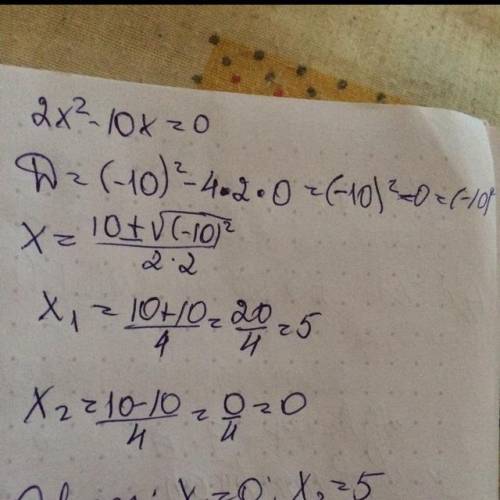 2x² - 10x = 0
D = (-10)² - 4·2·0 = (-10)² - 0 = (-10)²
x = (10 ± √(-10)²) / (2·2)
x₁ = (10+10)/4 = 20/4 = 5
x₂ = (10-10)/4 = 0/4 = 0
x = 0; x₂ = 5